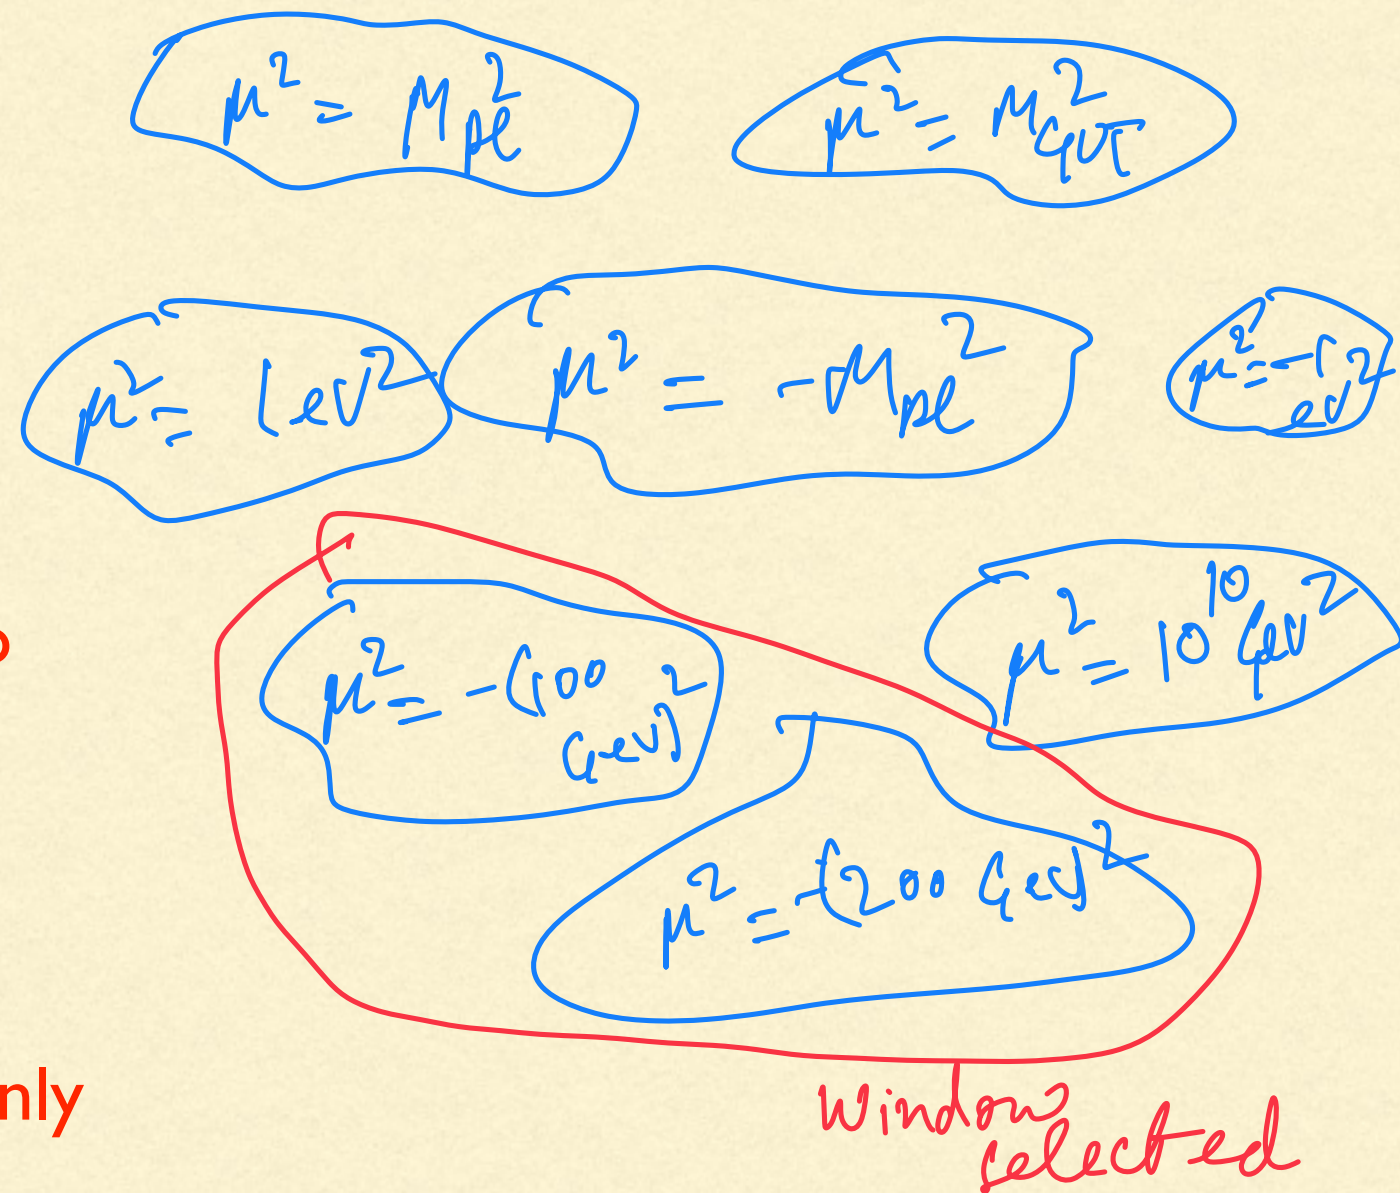 μ² = M²pl
μ² = M²GUT
μ² = 1eV²
μ² = -M²pl
μ² = -1
eV²
μ² = -(100
GeV)²
μ² = 10¹⁰ GeV²
μ² = -(200 GeV)²
nly
Window
selected